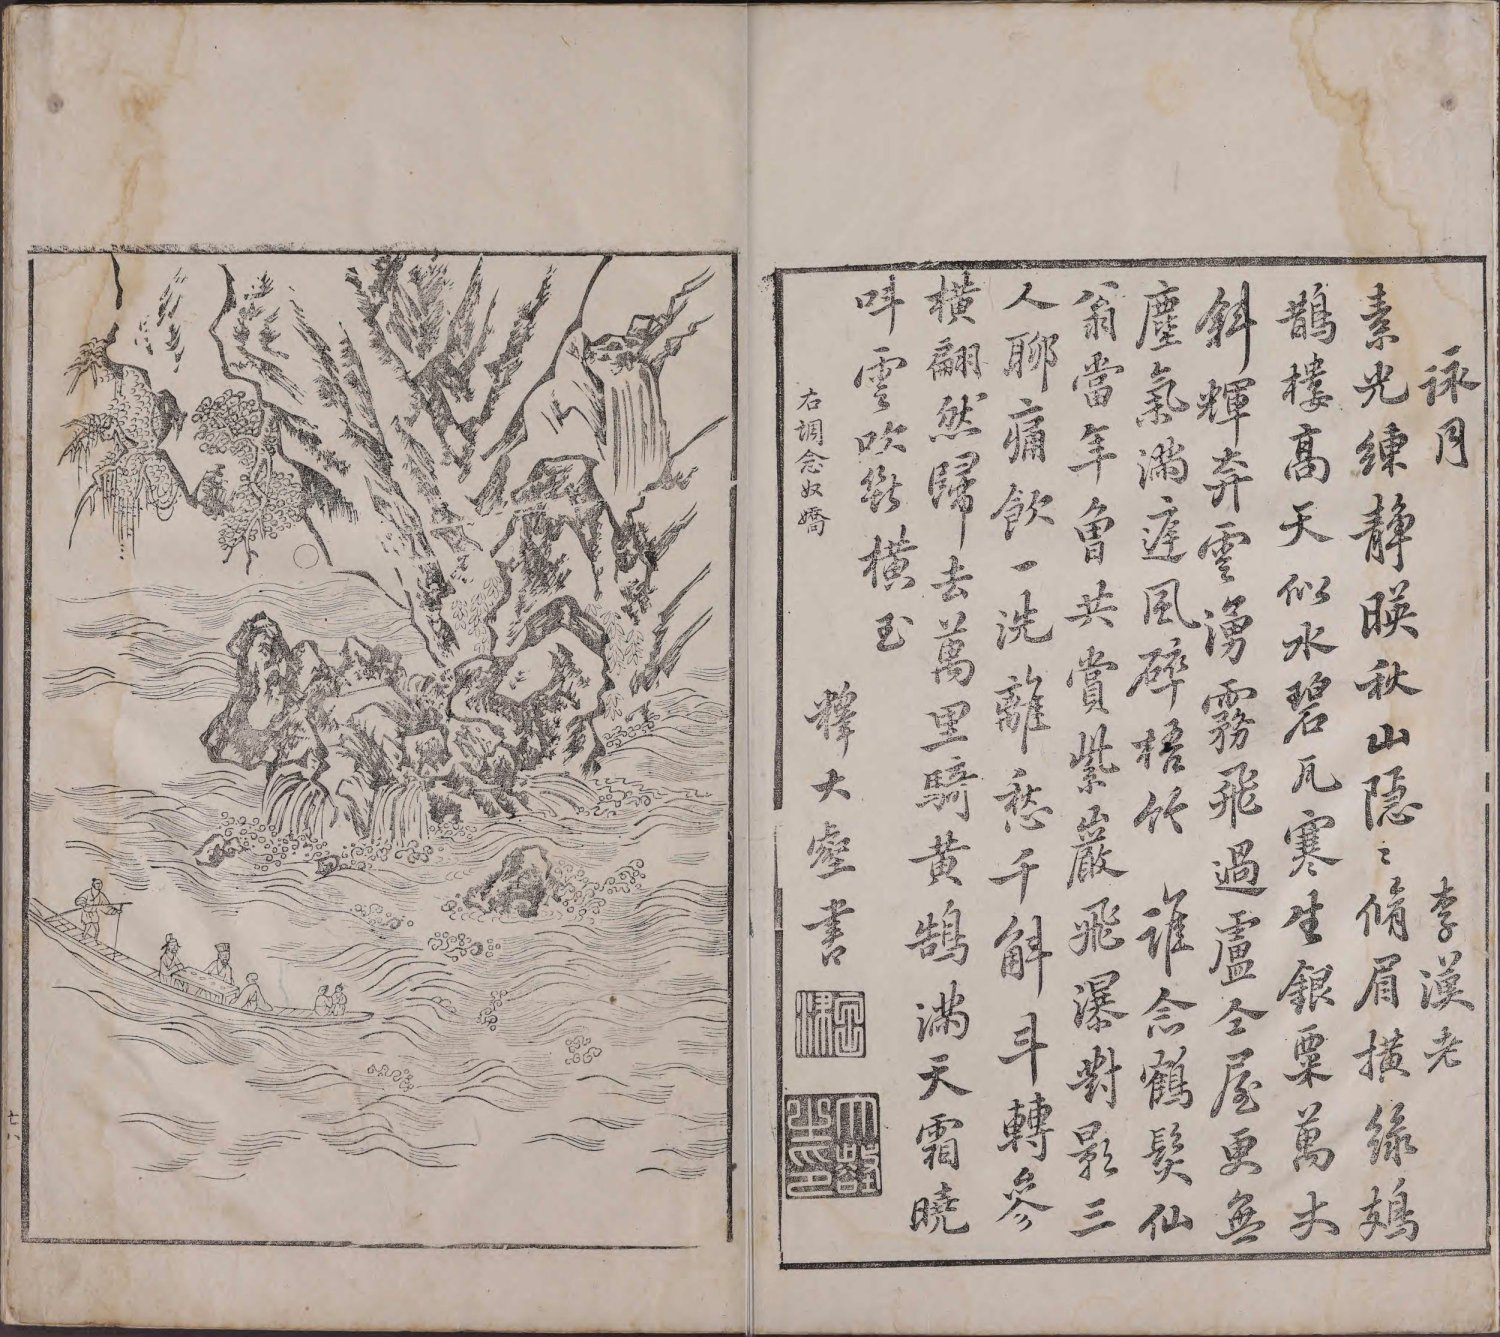 詠月 李漢老
素光練靜暎秋山隱〻脩眉橫綠鳷
鵲樓高天似水碧瓦寒生銀粟萬丈
斜輝奔雲湧霧飛過盧仝屋更無
塵氣滿庭風碎梧竹 誰念鶴髮仙
翁當年曾共賞紫巖飛瀑對影三
人聊痛飲一洗離愁千斛斗轉參
橫翩然歸去萬里騎黃鵠滿天霜曉
呌雲吹斷橫玉
右調念奴嬌
釋大壑書
大壑之印
七八